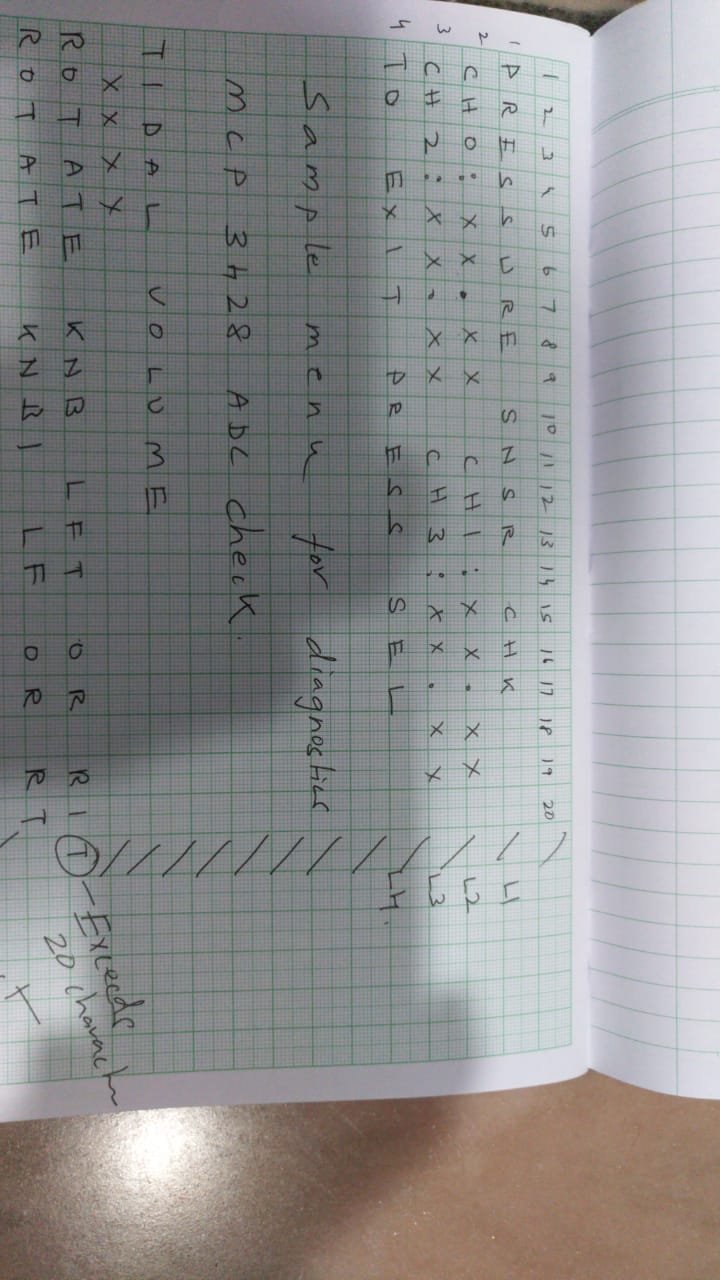 1 2 3 4 5 6 7 8 9 10 11 12 13 14 15 16 17 18 19 20
1 PRESSURE SNSR CHK L1
2 CH0:XX.XX CH1:XX.XX L2
3 CH2:XX.XX CH3:XX.XX L3
4 TO EXIT PRESS SEL L4.
Sample menu for diagnostics
MCP 3428 ADC check.
TIDAL VOLUME
XXXX
ROTATE KNB LFT OR RIT - Exceeds
20 charact
ROTATE KNB LF OR RT